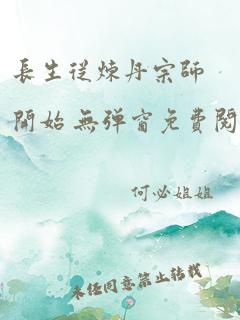 長生從煉丹宗師
開始 無彈窗免費閱
何必姐姐
未经同意禁止转载